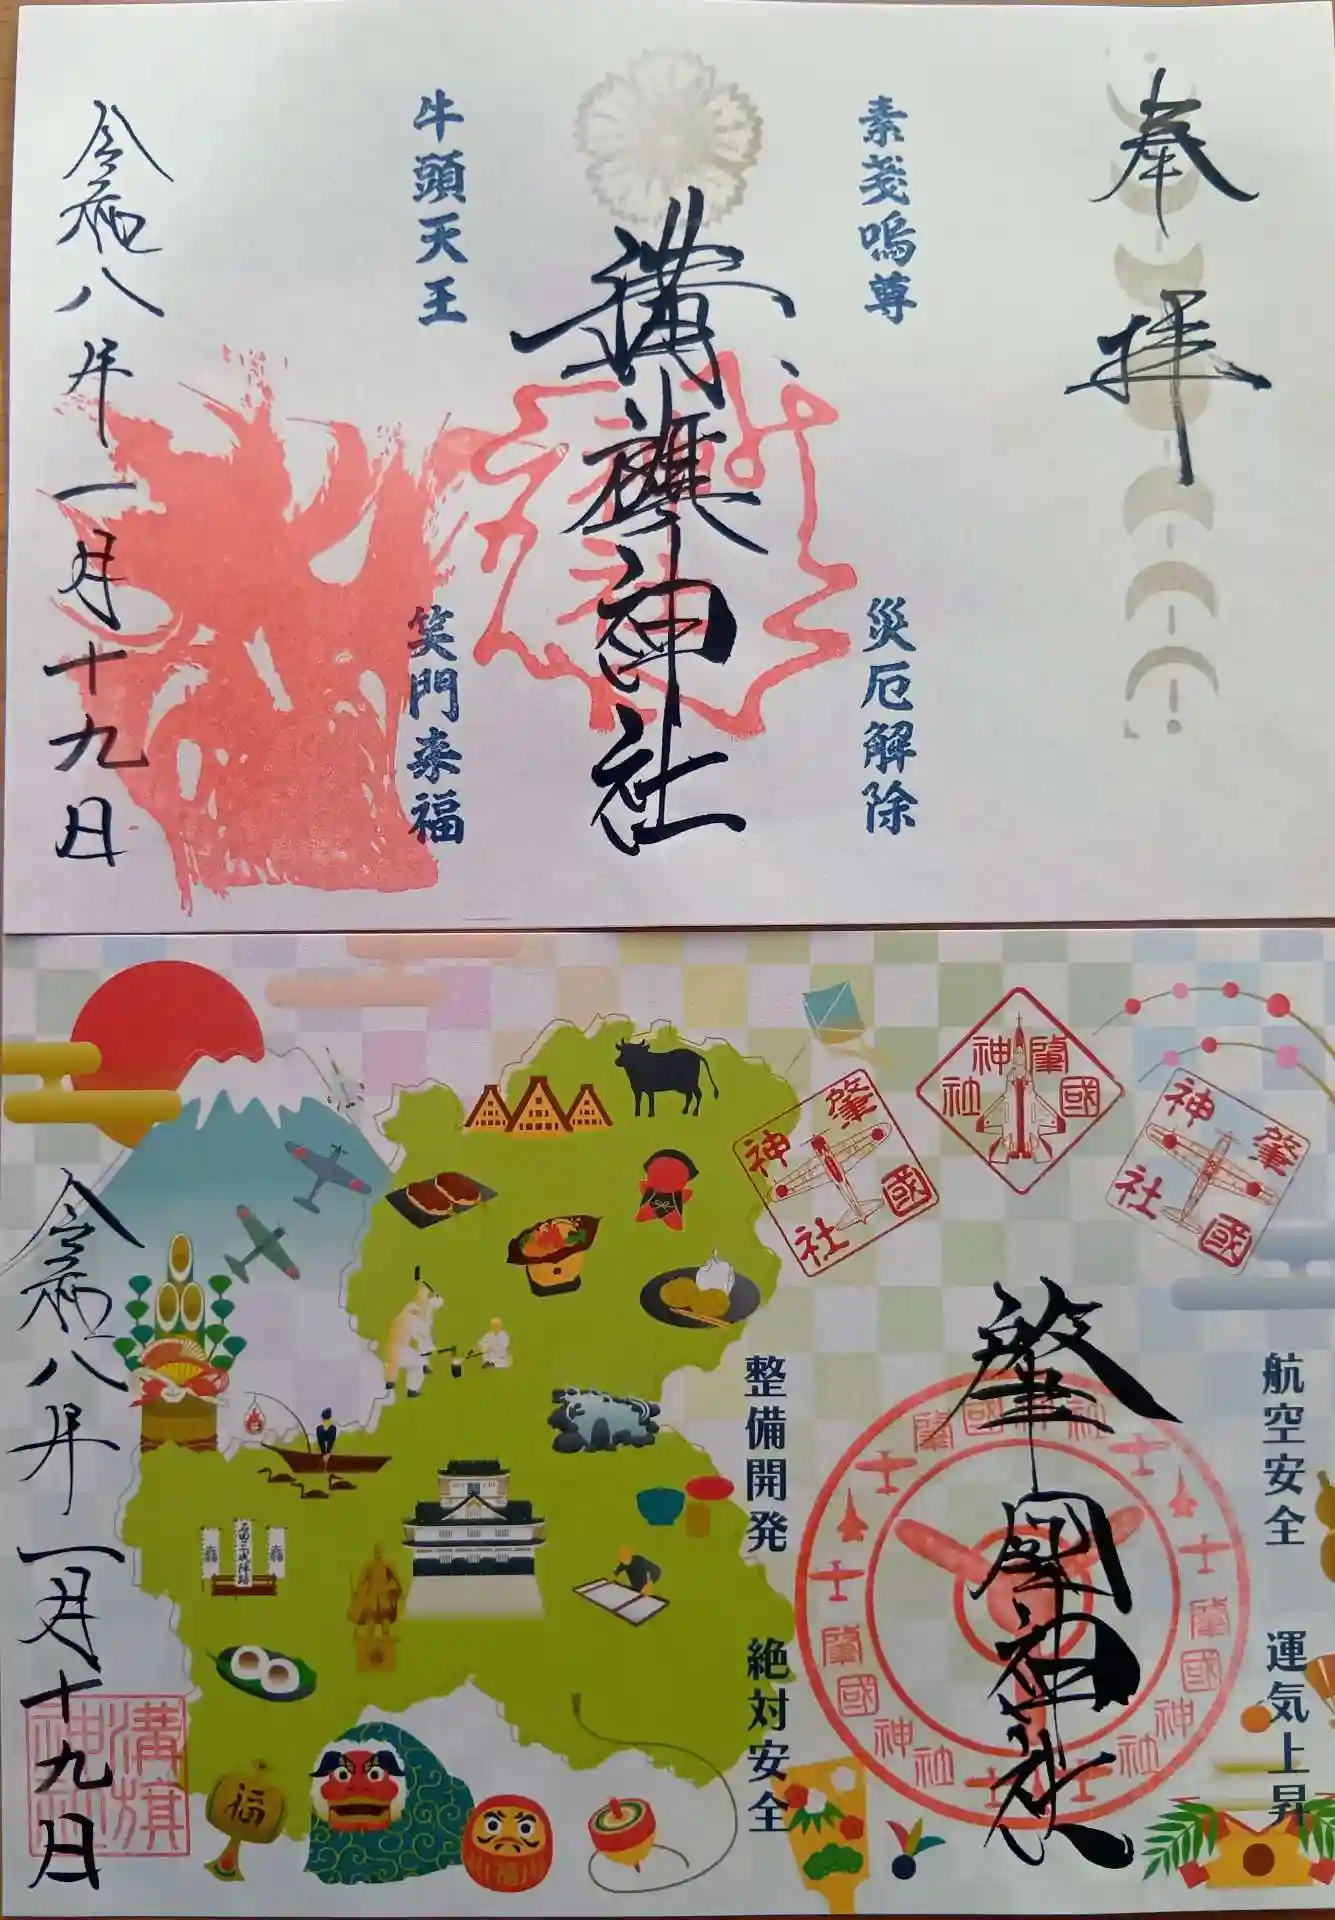 奉拝
素戔嗚尊
災厄解除
溝旗神社
牛頭天王
笑門来福
令和八年一月十九日
肇國神社
肇國神社
肇國神社
航空安全
運気上昇
肇國神社
肇國神社
肇國神社
肇國神社
整備開発
絶対安全
福
福
令和八年一月十九日
溝旗神社